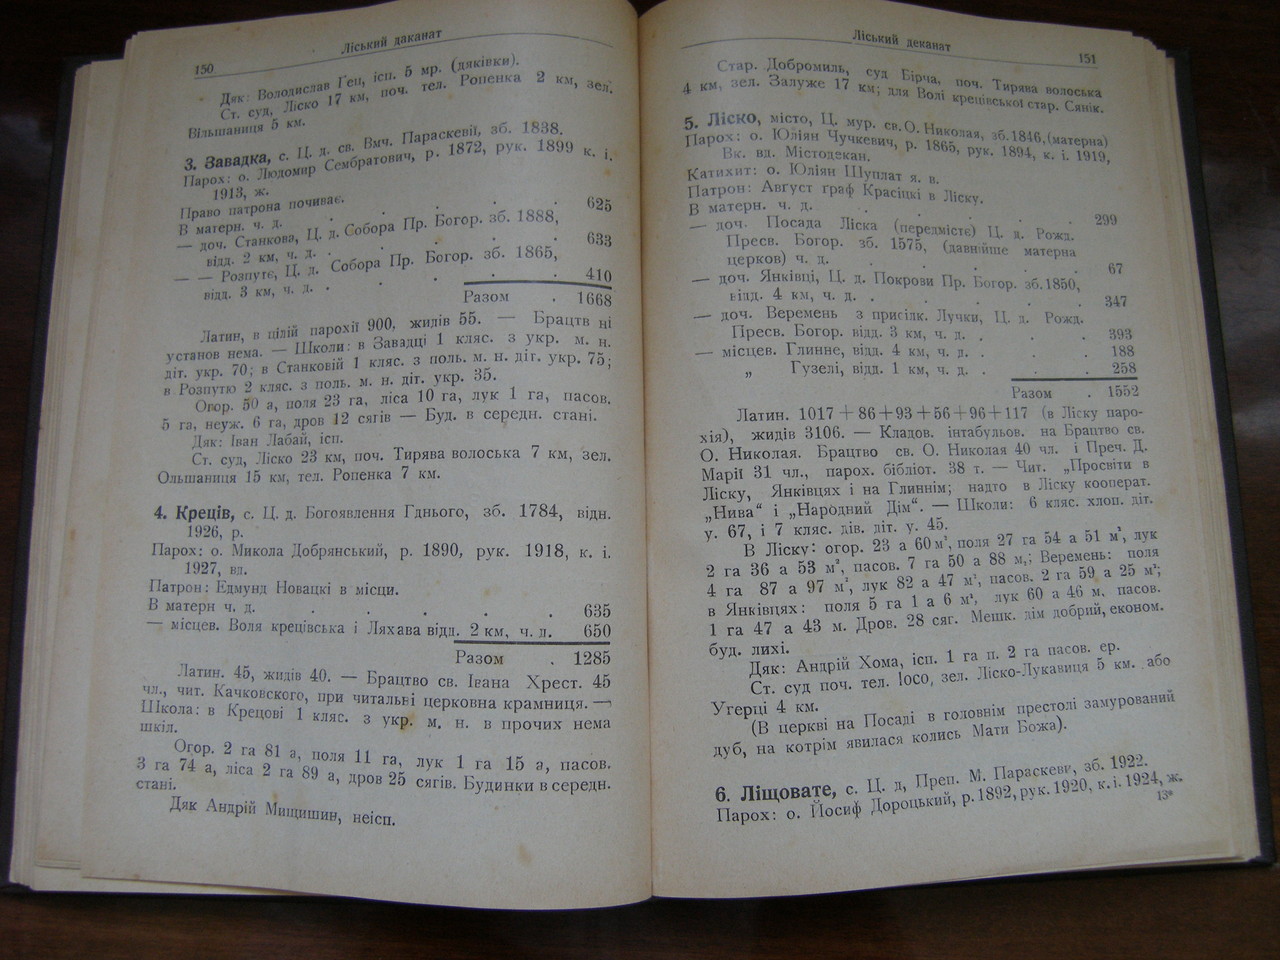 150 Ліський даканат
Дяк: Володислав Ґец, ісп. 5 мр. (дяківки).
Ст. суд, Ліско 17 км, поч. тел. Ропенка 2 км, зел.
Вільшаниця 5 км.
3. Завадка, с. Ц. д. св. Вмч. Параскевії, зб. 1838.
Парох: о. Людомир Сембратович, р. 1872, рук. 1899 к. і.
1913, ж.
Право патрона почиває.
В матерн. ч. д. . . . . . 625
— доч. Станкова, Ц. д. Собора Пр. Богор. зб. 1888,
відд. 2 км, ч. д. . . . . . 633
— — Розпутє, Ц. д. Собора Пр. Богор. зб. 1865,
відд. 3 км, ч. д. . . . . . 410
Разом . 1668
Латин, в цілій парохії 900, жидів 55. — Брацтв ні
установ нема. — Школи: в Завадці 1 кляс. з укр. м. н.
діт. укр. 70; в Станковій 1 кляс. з поль. м. н. діт. укр. 75;
в Розпутю 2 кляс. з поль. м. н. діт. укр. 35.
Огор. 50 а, поля 23 га, ліса 10 га, лук 1 га, пасов.
5 га, неуж. 6 га, дров 12 сягів — Буд. в середн. стані.
Дяк: Іван Лабай, ісп.
Ст. суд, Ліско 23 км, поч. Тирява волоська 7 км, зел.
Ольшаниця 15 км, тел. Ропенка 7 км.
4. Креців, с. Ц. д. Богоявлення Гднього, зб. 1784, відн.
1926, р.
Парох: о. Микола Добрянський, р. 1890, рук. 1918, к. і.
1927, вд.
Патрон: Едмунд Новацкі в місци.
В матерн ч. д. . . . . . 635
— місцев. Воля крецівська і Ляхава відд. 2 км, ч. д. 650
Разом . 1285
Латин. 45, жидів 40. — Брацтво св. Івана Хрест. 45
чл., чит. Качковского, при читальні церковна крамниця. —
Школа: в Крецові 1 кляс. з укр. м. н. в прочих нема
шкіл.
Огор. 2 га 81 а, поля 11 га, лук 1 га 15 а, пасов.
3 га 74 а, ліса 2 га 89 а, дров 25 сягів. Будинки в середн.
стані.
Дяк Андрій Мищишин, неісп.
Ліський деканат 151
Стар. Добромиль, суд Бірча, поч. Тирява волоська
4 км, зел. Залуже 17 км; для Волі крецівської стар. Сянік.
5. Ліско, місто, Ц. мур. св. О. Николая, зб. 1846, (матерна)
Парох: о. Юліян Чучкевич, р. 1865, рук. 1894, к. і. 1919,
Вк. вд. Містодекан.
Катихит: о. Юліян Шуплат я. в.
Патрон: Август граф Красіцкі в Ліску.
В матерн. ч. д. . . . . . 299
— доч. Посада Ліска (передмістє) Ц. д. Рожд.
Пресв. Богор. зб. 1575, (давнійше матерна
церков) ч. д. . . . . . 67
— доч. Янківці, Ц. д. Покрови Пр. Богор. зб. 1850,
відд. 4 км, ч. д. . . . . . 347
— доч. Веремень з присілк. Лучки, Ц. д. Рожд.
Пресв. Богор. відд. 3 км, ч. д. . . . 393
— місцев. Глинне, відд. 4 км, ч. д. . . . 188
„ Гузелі, відд. 1 км, ч. д. . . . 258
Разом . 1552
Латин. 1017 + 86 + 93 + 56 + 96 + 117 (в Ліску паро-
хія), жидів 3106. — Кладов. інтабульов. на Брацтво св.
О. Николая. Брацтво св. О. Николая 40 чл. і Преч. Д.
Марії 31 чл., парох. бібліот. 38 т. — Чит. „Просвіти в
Ліску, Янківцях і на Глиннім; надто в Ліску кооперат.
„Нива“ і „Народний Дім“. — Школи: 6 кляс. хлоп. діт.
у. 67, і 7 кляс. дів. діт. у. 45.
В Ліску: огор. 23 а 60 м², поля 27 га 54 а 51 м², лук
2 га 36 а 53 м², пасов. 7 га 50 а 88 м,; Веремень: поля
4 га 87 а 97 м², лук 82 а 47 м², пасов. 2 га 59 а 25 м²;
в Янківцях: поля 5 га 1 а 6 м², лук 60 а 46 м, пасов.
1 га 47 а 43 м. Дров. 28 сяг. Мешк. дім добрий, економ.
буд. лихі.
Дяк: Андрій Хома, ісп. 1 га п. 2 га пасов. ер.
Ст. суд поч. тел. loco, зел. Ліско-Лукавиця 5 км. або
Угерці 4 км.
(В церкві на Посаді в головнім престолі замурований
дуб, на котрім явилася колись Мати Божа).
6. Ліщовате, с. Ц. д, Преп. М. Параскеви, зб. 1922.
Парох: о. Йосиф Дороцький, р. 1892, рук. 1920, к. і. 1924, ж.
13*